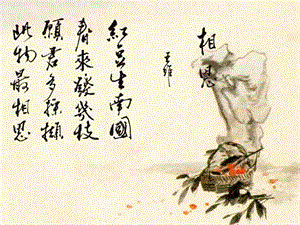 相思
王维
紅豆生南國
春來發幾枝
願君多采擷
此物最相思